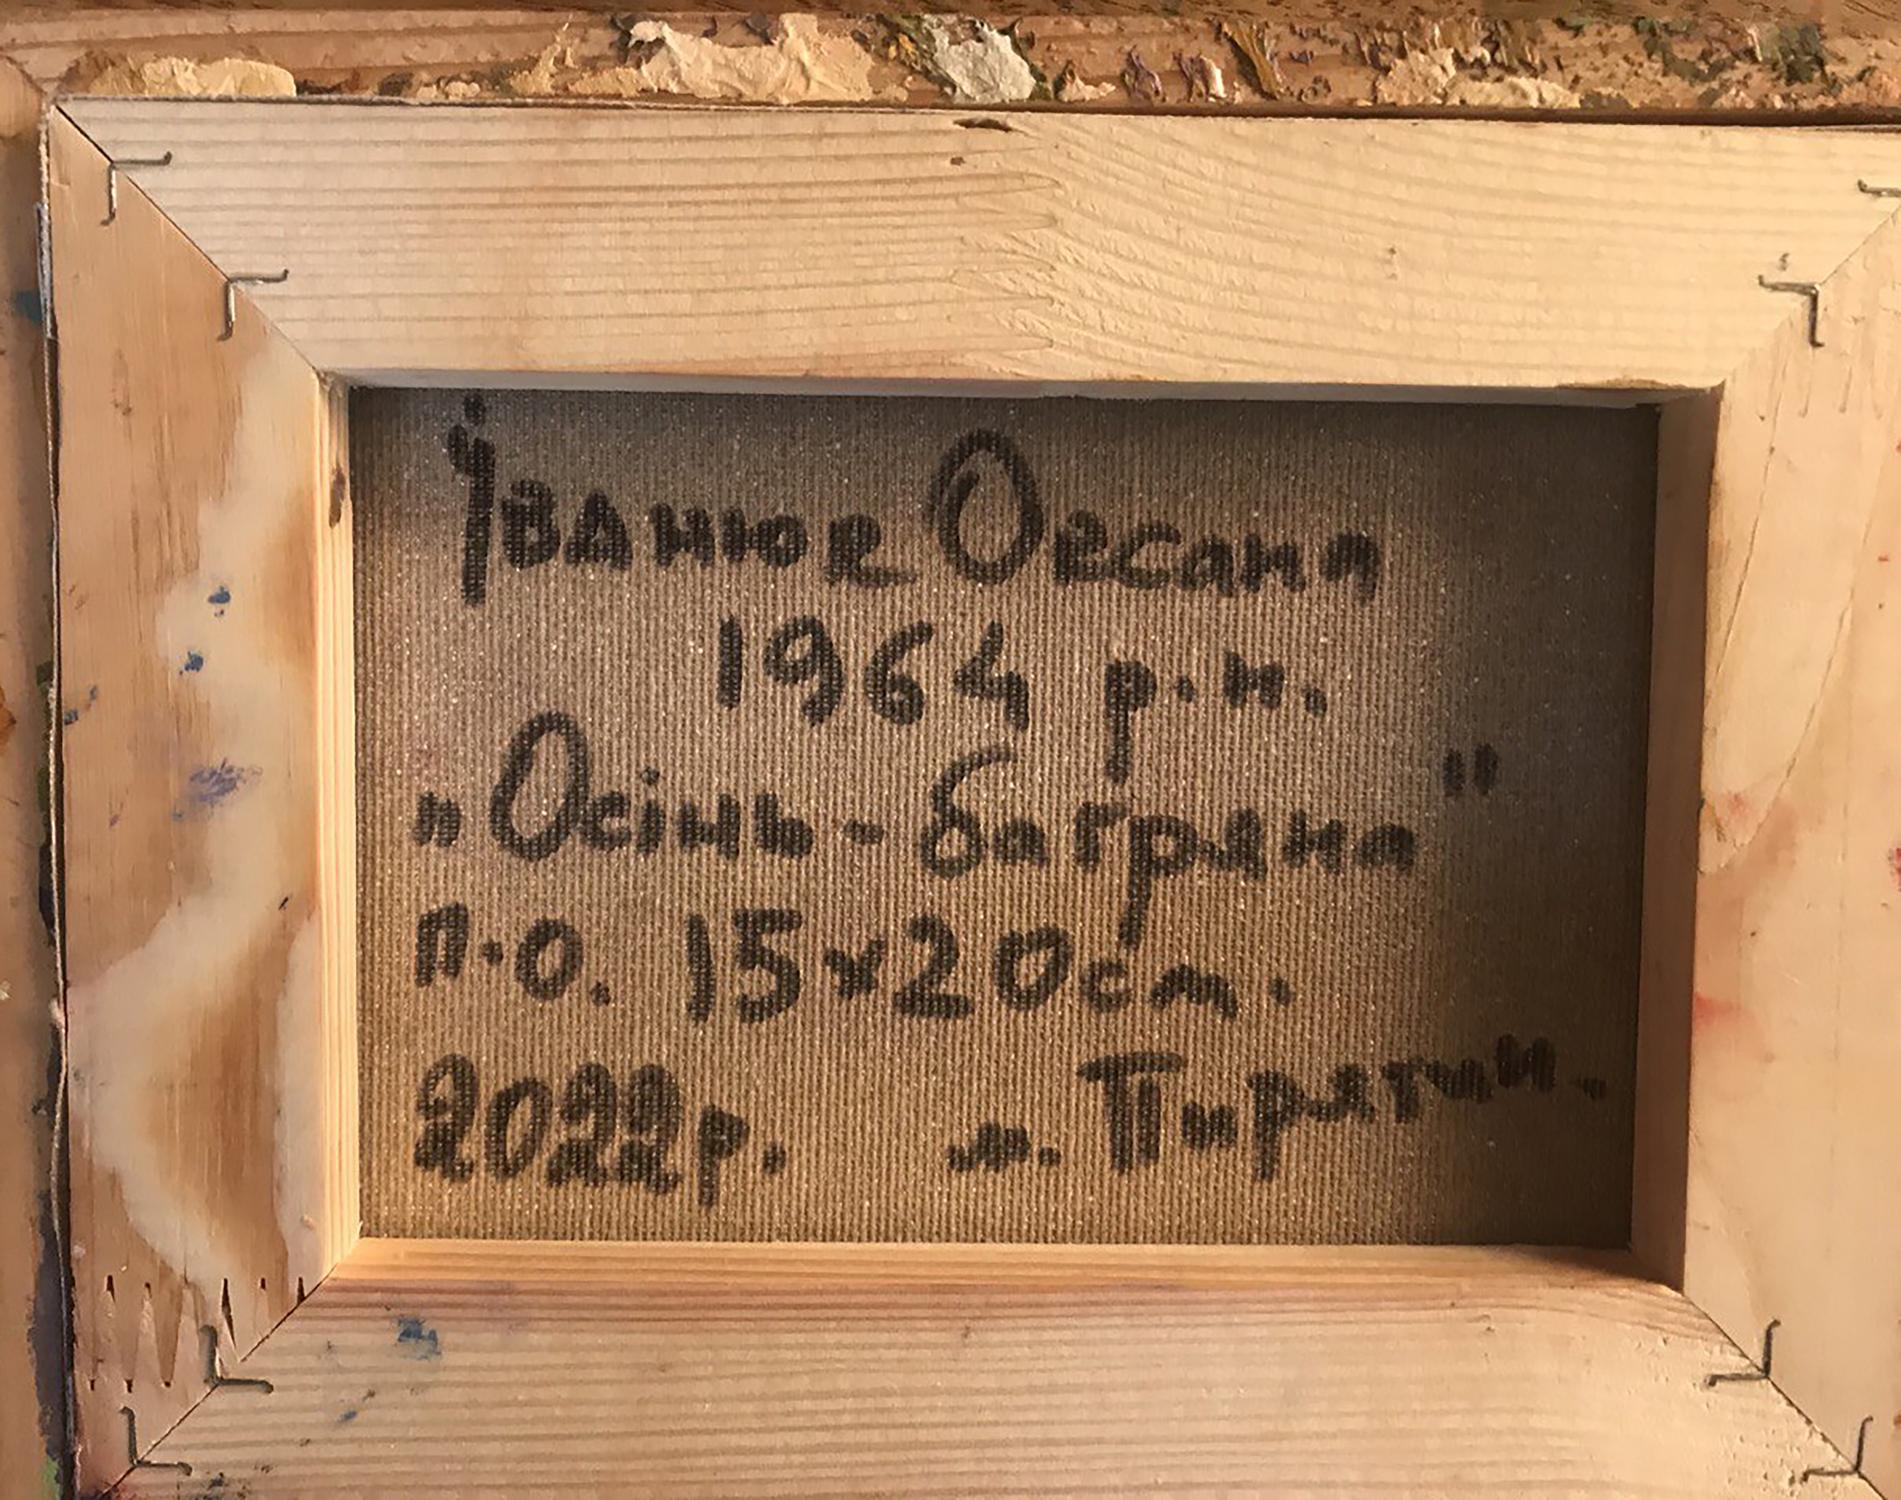 Іванюк Оксана
1964 р.н.
„Осінь-багряна"
п.о. 15х20cm.
2022р. м. Пирятин.